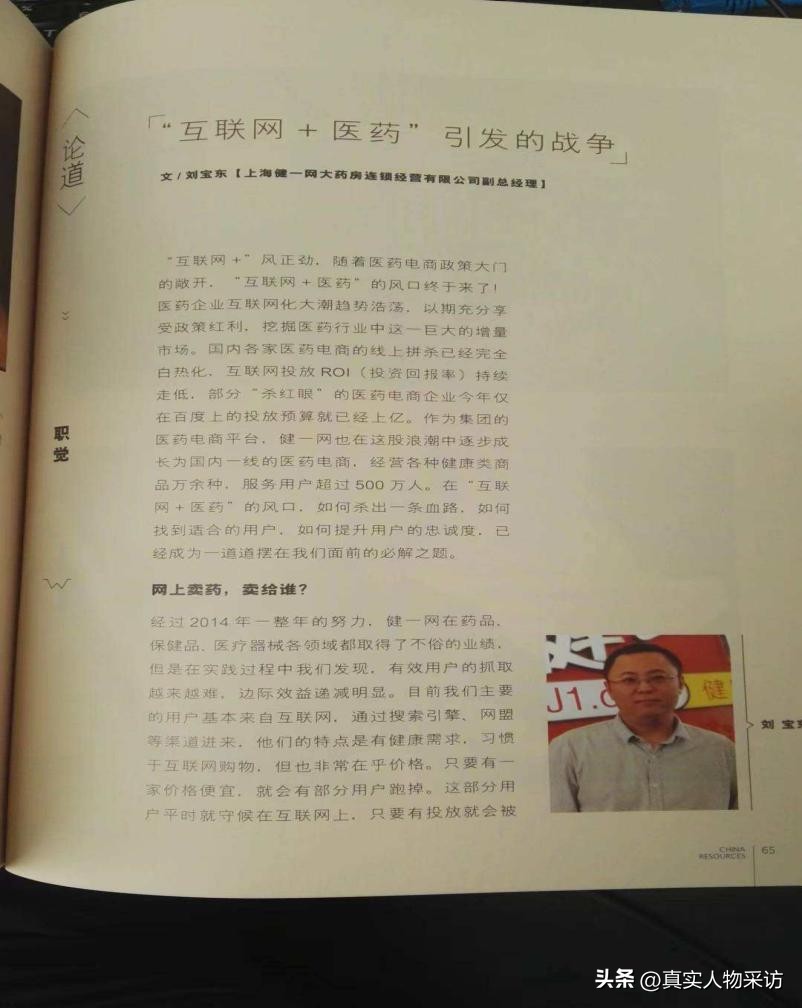 论道
职觉
「“互联网 + 医药” 引发的战争」
文 / 刘宝东【上海健一网大药房连锁经营有限公司副总经理】
“互联网 +”风正劲，随着医药电商政策大门
的敞开，“互联网 + 医药”的风口终于来了！
医药企业互联网化大潮趋势浩荡，以期充分享
受政策红利，挖掘医药行业中这一巨大的增量
市场。国内各家医药电商的线上拼杀已经完全
白热化，互联网投放 ROI（投资回报率）持续
走低，部分“杀红眼”的医药电商企业今年仅
在百度上的投放预算就已经上亿。作为集团的
医药电商平台，健一网也在这股浪潮中逐步成
长为国内一线的医药电商，经营各种健康类商
品万余种，服务用户超过 500 万人。在“互联
网 + 医药”的风口，如何杀出一条血路，如何
找到适合的用户，如何提升用户的忠诚度，已
经成为一道道摆在我们面前的必解之题。
网上卖药，卖给谁？
经过 2014 年一整年的努力，健一网在药品、
保健品、医疗器械各领域都取得了不俗的业绩，
但是在实践过程中我们发现，有效用户的抓取
越来越难，边际效益递减明显。目前我们主要
的用户基本来自互联网，通过搜索引擎、网盟
等渠道进来，他们的特点是有健康需求，习惯
于互联网购物，但也非常在乎价格。只要有一
家价格便宜，就会有部分用户跑掉。这部分用
户平时就守候在互联网上，只要有投放就会被
J1.C
健
刘 宝东
CHINA
RESOURCES
65
头条 @真实人物采访